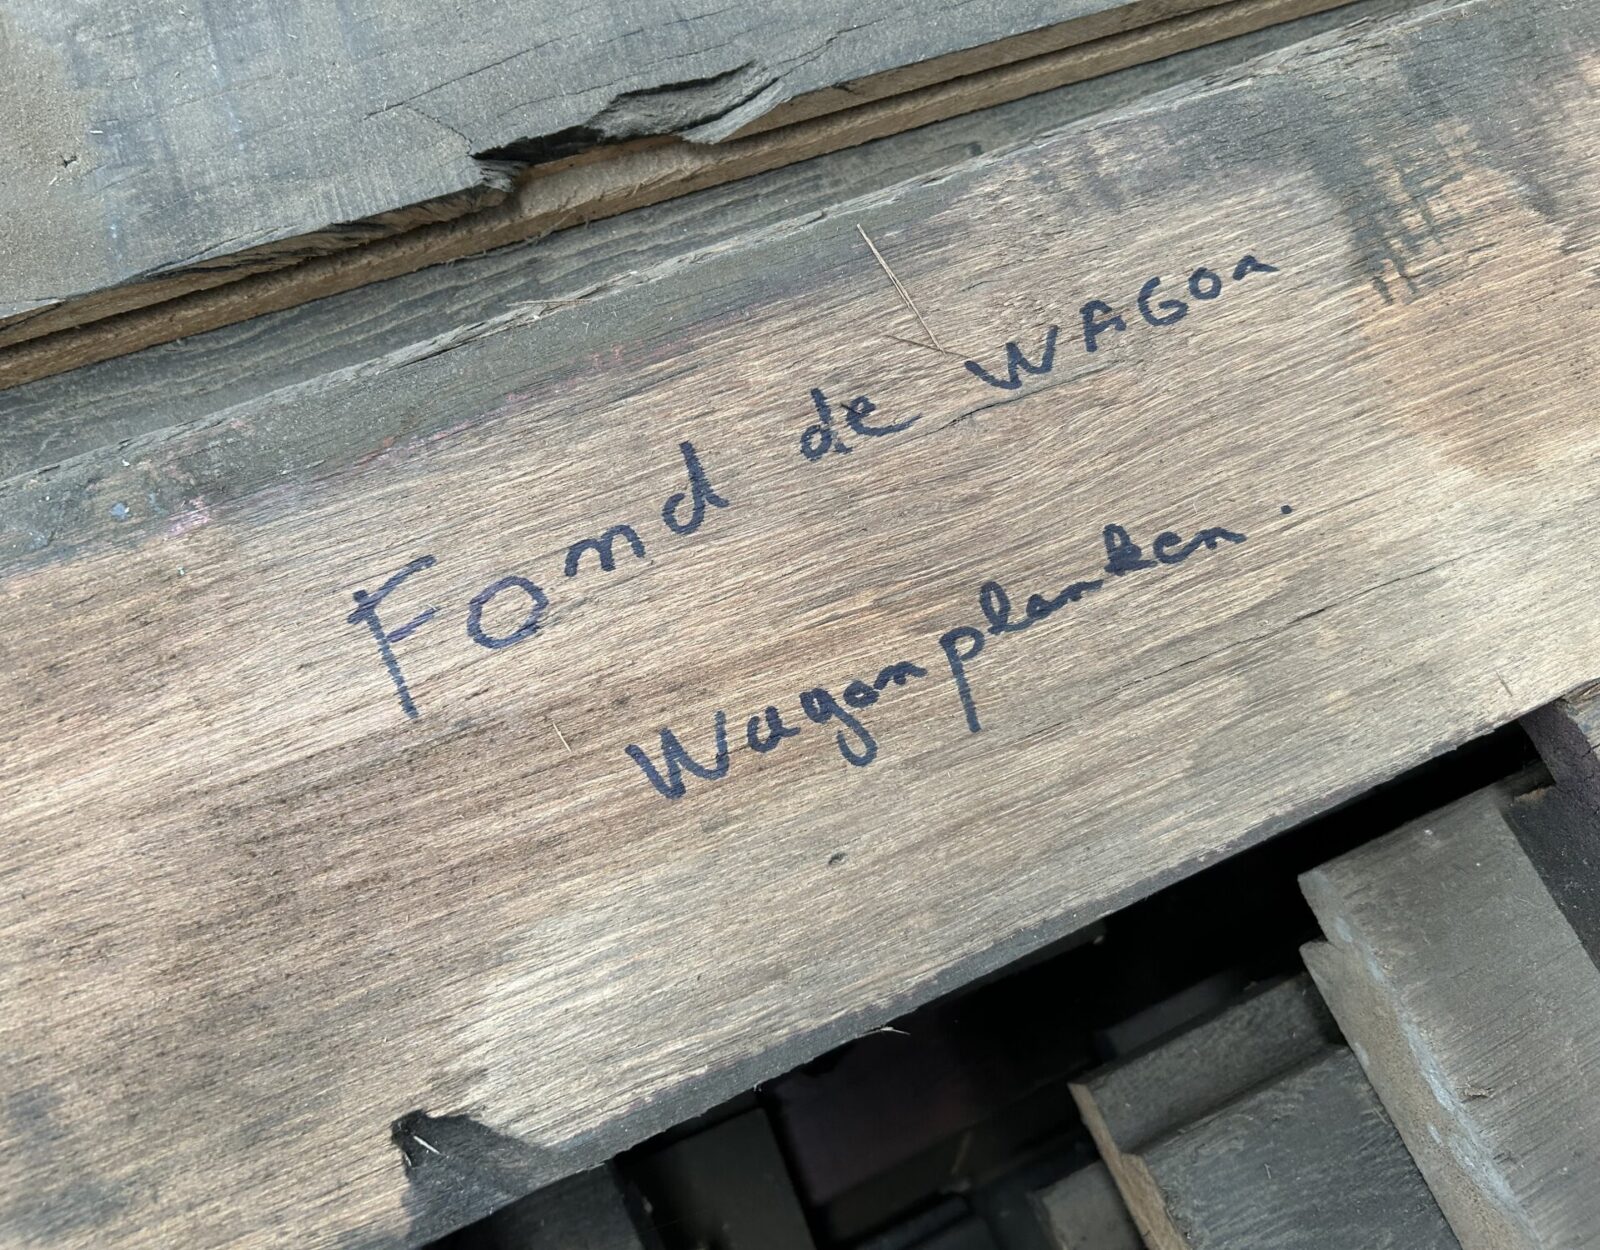 Fond de WAGOn
Wagonplanken.